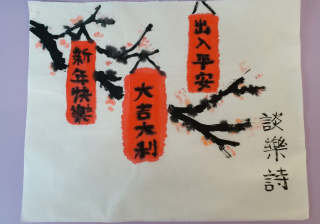 出入平安
大吉大利
新年快樂
談樂詩